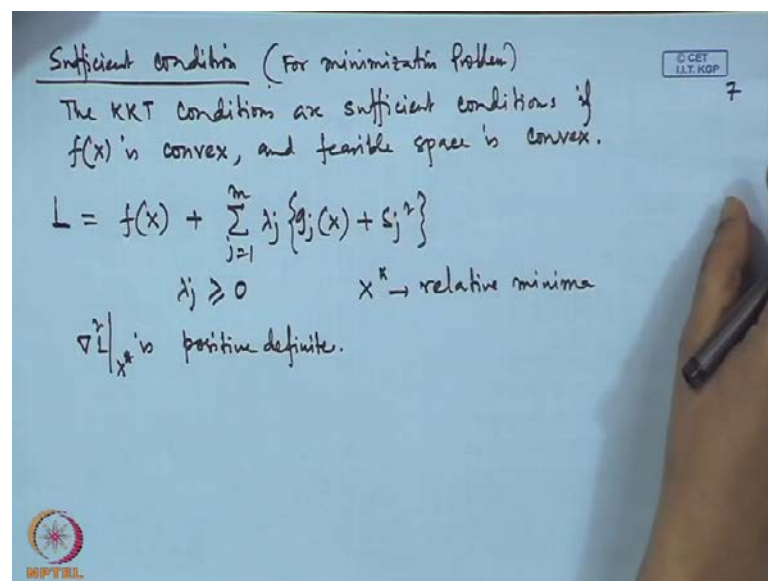 Sufficient condition (For minimization Problem)
© CET
I.I.T. KGP
7
The KKT conditions are sufficient conditions if
f(x) is convex, and feasible space is convex.
L = f(x) + ∑_{j=1}^{m} λj {gj(x) + sj²}
λj ≥ 0 x* → relative minima
∇²L|x* is positive definite.
NPTEL